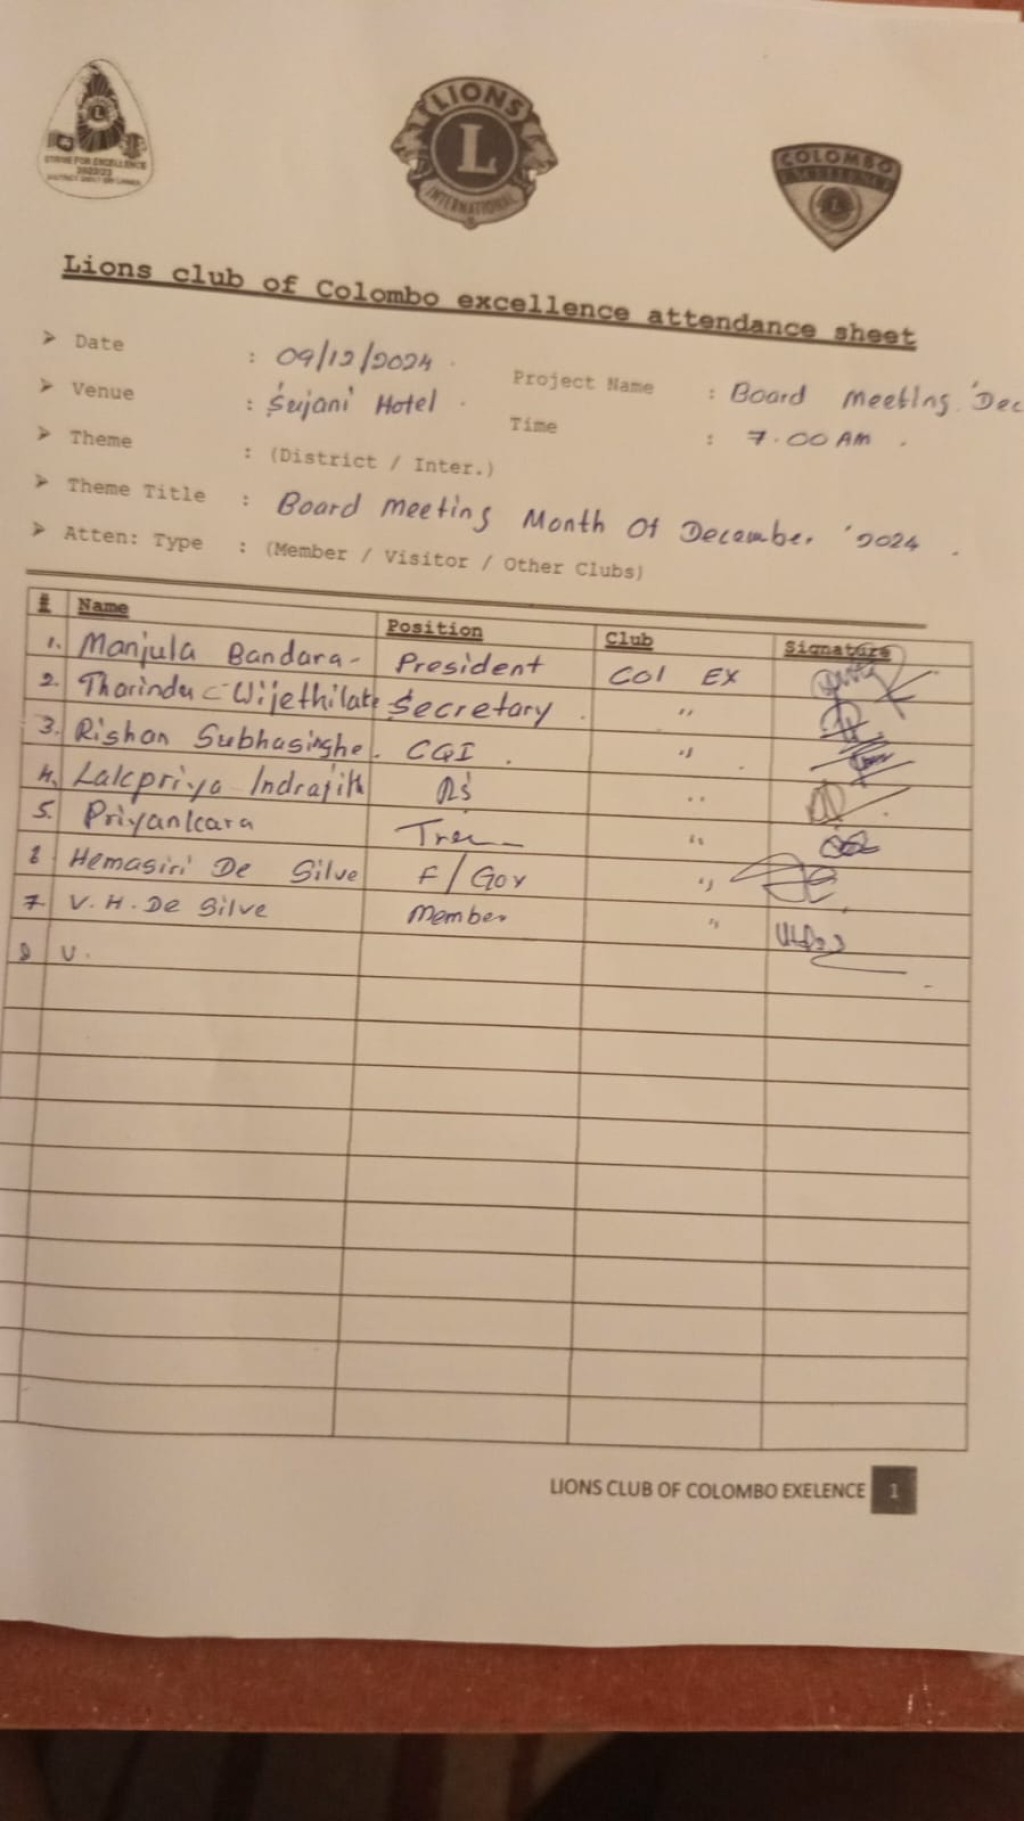 STRIVE FOR EXCELLENCE
2022/23
LIONS
L
INTERNATIONAL
COLOMBO
EXCELLENCE
L
Lions club of Colombo excellence attendance sheet
➤ Date : 09/12/2024 Project Name : Board Meeting 'Dec
➤ Venue : Sujani Hotel Time : 7.00 AM
➤ Theme : (District / Inter.)
➤ Theme Title : Board Meeting Month Of December '2024
➤ Atten: Type : (Member / Visitor / Other Clubs)
# Name Position Club Signature
1. Manjula Bandara - President Col EX
2. Tharindu Wijethilake Secretary "
3. Rishan Subhasinghe. CQI "
4. Lakpriya Indrajith "
5. Priyankara "
Hemasiri De Silve F/Gov "
7 V.H. De Silve Member "
8 V.
LIONS CLUB OF COLOMBO EXELENCE 1